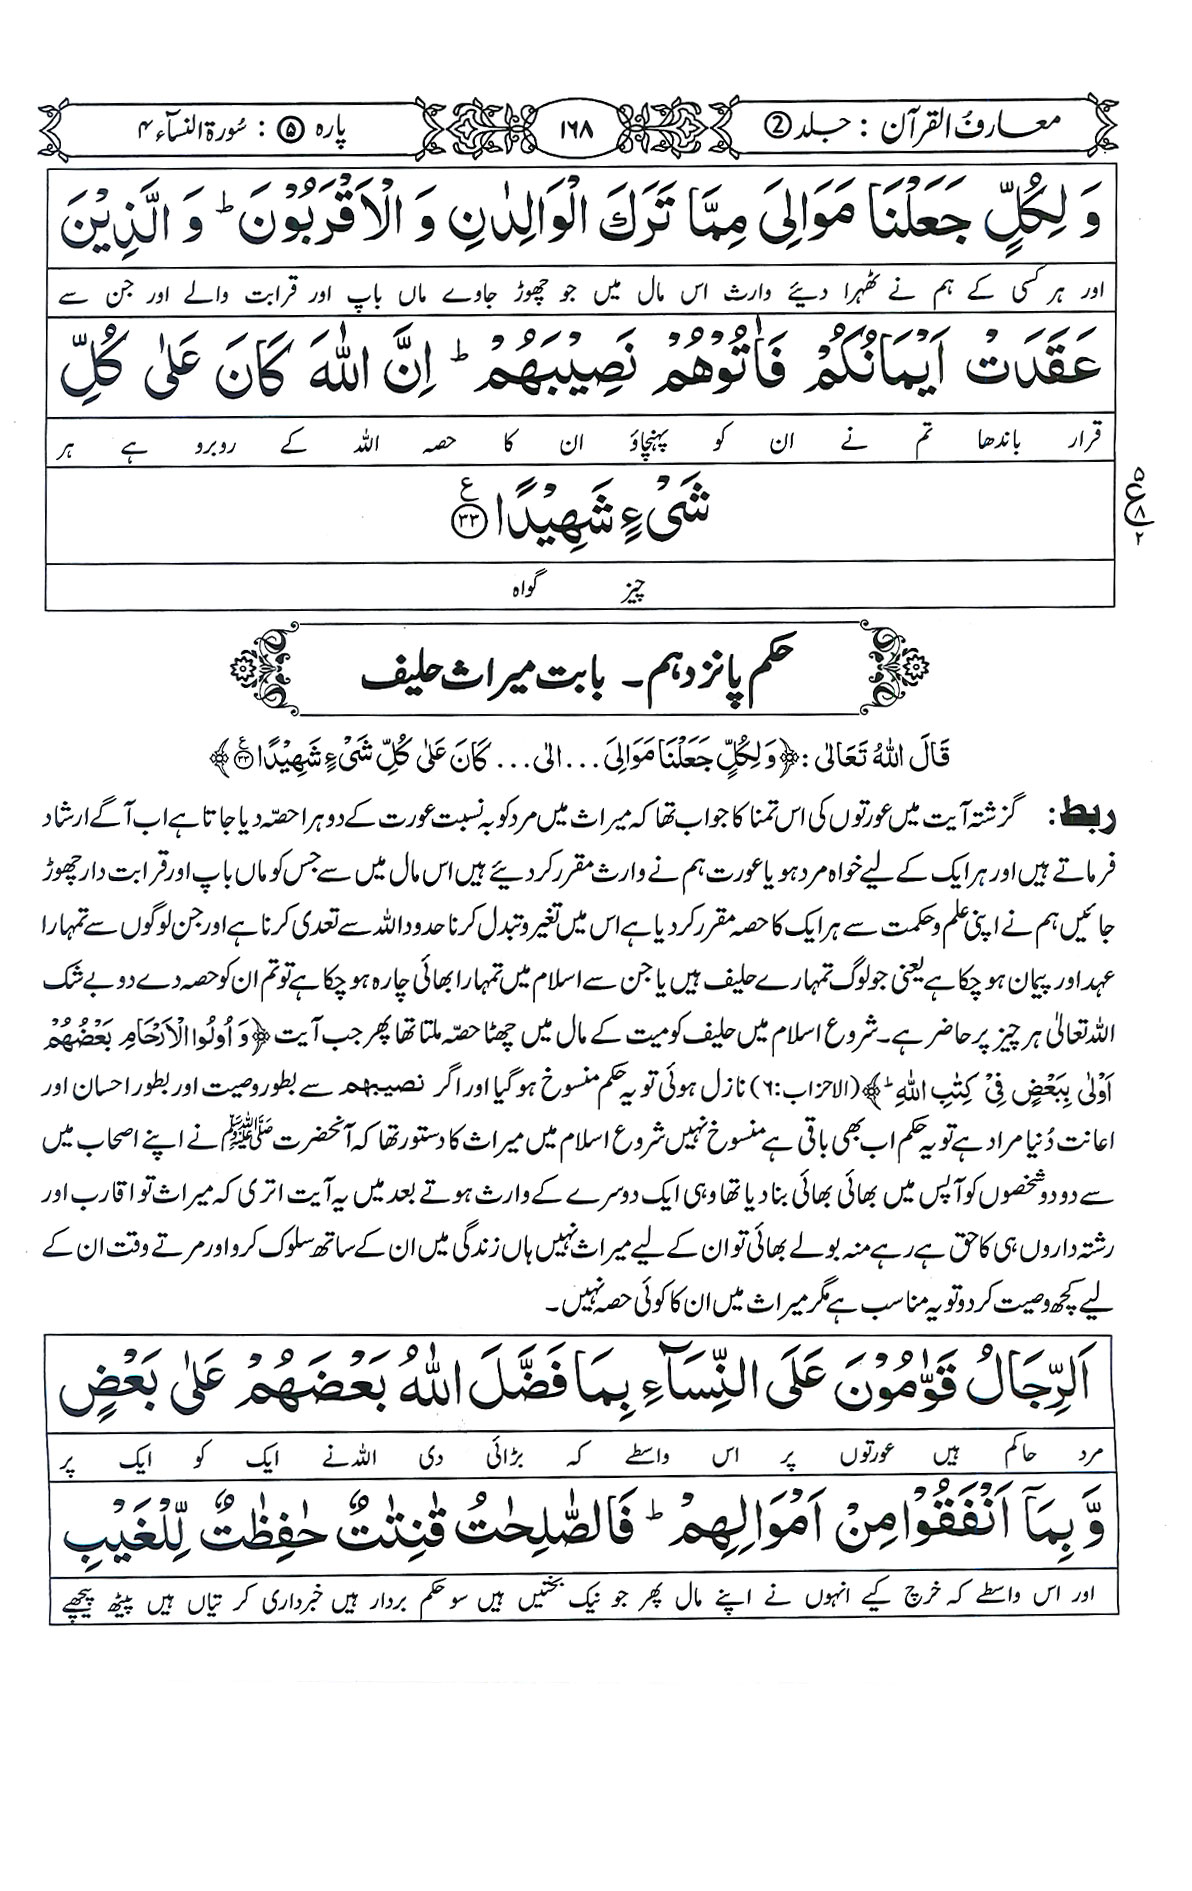 معارفُ القرآن : جلد ②
۱۶۸
پارہ ⑤ : سُورۃ النسآء ۴
وَ لِكُلٍّ جَعَلْنَا مَوَالِىَ مِمَّا تَرَكَ الْوَالِدٰنِ وَ الْاَقْرَبُوْنَ ؕ وَ الَّذِيْنَ
اور ہر کسی کے ہم نے ٹھہرا دیئے وارث اس مال میں جو چھوڑ جاوے ماں باپ اور قرابت والے اور جن سے
عَقَدَتْ اَيْمَانُكُمْ فَاٰتُوْهُمْ نَصِيْبَهُمْ ؕ اِنَّ اللّٰهَ كَانَ عَلٰى كُلِّ
قرار باندھا تم نے ان کو پہنچاؤ ان کا حصہ اللہ کے روبرو ہے ہر
شَىْءٍ شَهِيْدًا ع ۳۳
۵ ع ۸ ۲
چیز گواہ
حکم پانزدہم۔ بابت میراث حلیف
قَالَ اللّٰهُ تَعَالٰى : ﴿وَلِكُلٍّ جَعَلْنَا مَوَالِىَ ... الٰى ... كَانَ عَلٰى كُلِّ شَىْءٍ شَهِيْدًا ع ۳۳﴾
ربط: گزشتہ آیت میں عورتوں کی اس تمنا کا جواب تھا کہ میراث میں مرد کو بہ نسبت عورت کے دوہرا حصّہ دیا جاتا ہے اب آگے ارشاد
فرماتے ہیں اور ہر ایک کے لیے خواہ مرد ہو یا عورت ہم نے وارث مقرر کر دیئے ہیں اس مال میں سے جس کو ماں باپ اور قرابت دار چھوڑ
جائیں ہم نے اپنی علم و حکمت سے ہر ایک کا حصہ مقرر کر دیا ہے اس میں تغیر و تبدل کرنا حدود اللہ سے تعدی کرنا ہے اور جن لوگوں سے تمہارا
عہد اور پیمان ہو چکا ہے یعنی جو لوگ تمہارے حلیف ہیں یا جن سے اسلام میں تمہارا بھائی چارہ ہو چکا ہے تو تم ان کو حصہ دے دو بے شک
اللہ تعالیٰ ہر چیز پر حاضر ہے۔ شروع اسلام میں حلیف کو میت کے مال میں چھٹا حصّہ ملتا تھا پھر جب آیت ﴿وَ اُولُوا الْاَرْحَامِ بَعْضُهُمْ
اَوْلٰى بِبَعْضٍ فِىْ كِتٰبِ اللّٰهِ ؕ﴾ (الاحزاب:۶) نازل ہوئی تو یہ حکم منسوخ ہو گیا اور اگر نصیبھم سے بطور وصیت اور بطور احسان اور
اعانت دُنیا مراد ہے تو یہ حکم اب بھی باقی ہے منسوخ نہیں شروع اسلام میں میراث کا دستور تھا کہ آنحضرت ﷺ نے اپنے اصحاب میں
سے دو دو شخصوں کو آپس میں بھائی بھائی بنا دیا تھا وہی ایک دوسرے کے وارث ہوتے بعد میں یہ آیت اتری کہ میراث تو اقارب اور
رشتہ داروں ہی کا حق ہے رہے منہ بولے بھائی تو ان کے لیے میراث نہیں ہاں زندگی میں ان کے ساتھ سلوک کرو اور مرتے وقت ان کے
لیے کچھ وصیت کر دو تو یہ مناسب ہے مگر میراث میں ان کا کوئی حصہ نہیں۔
اَلرِّجَالُ قَوّٰمُوْنَ عَلَى النِّسَآءِ بِمَا فَضَّلَ اللّٰهُ بَعْضَهُمْ عَلٰى بَعْضٍ
مرد حاکم ہیں عورتوں پر اس واسطے کہ بڑائی دی اللہ نے ایک کو ایک پر
وَّ بِمَاۤ اَنْفَقُوْا مِنْ اَمْوَالِهِمْ ؕ فَالصّٰلِحٰتُ قٰنِتٰتٌ حٰفِظٰتٌ لِّلْغَيْبِ
اور اس واسطے کہ خرچ کیے انہوں نے اپنے مال پھر جو نیک بختیں ہیں سو حکم بردار ہیں خبرداری کر تیاں ہیں پیٹھ پیچھے